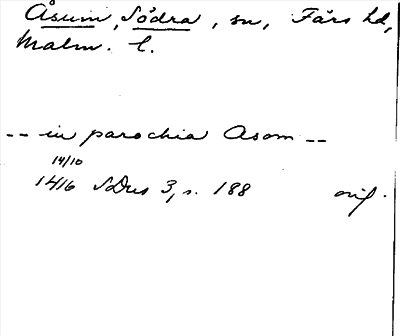 Åsum, Södra, sn, Färs hd,
Malm. l.
-- in parochia Asom --
14/10
1416 SDns 3, s. 188 orig.